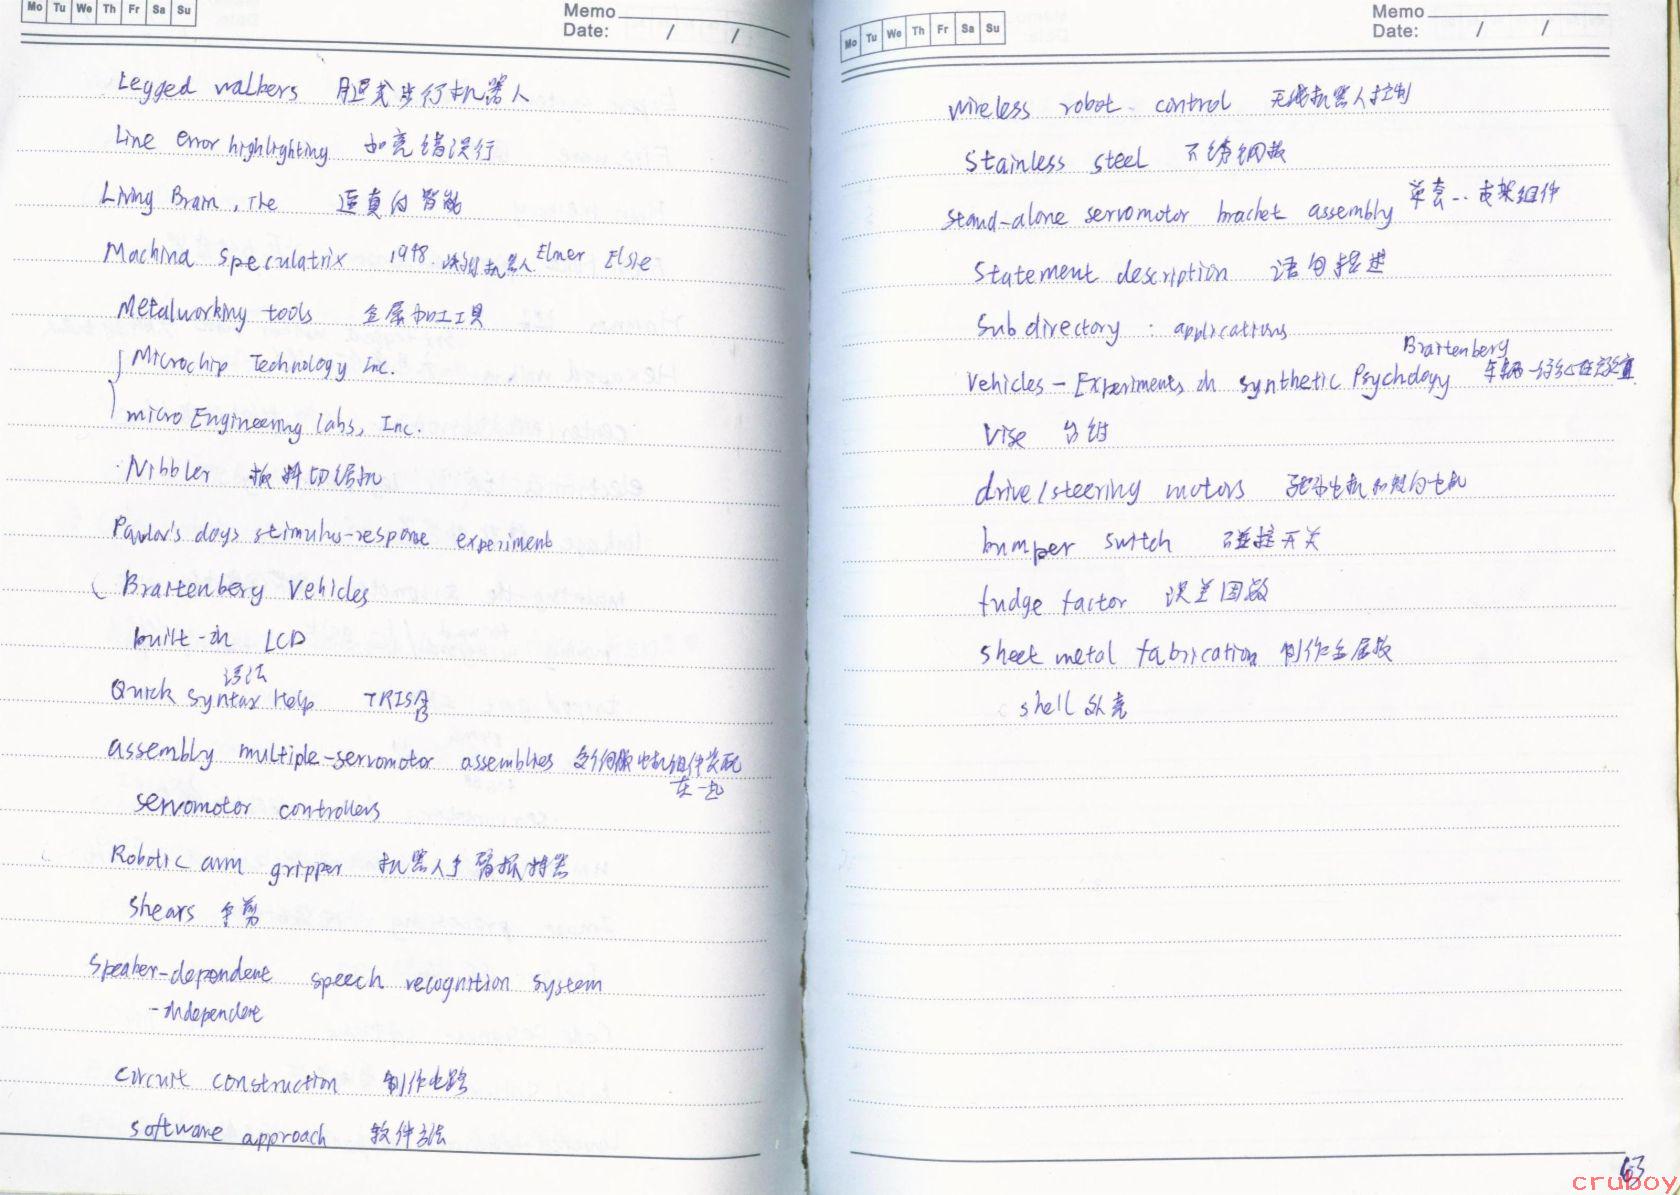 Mo Tu We Th Fr Sa Su
Memo
Date: / /
Legged walkers 腿式步行机器人
Line error highlighting 加亮错误行
Living Brain, The 逼真的智能
Machina Speculatrix 1948 机器人 Elmer Elsie
Metalworking tools 金属加工工具
Microchip Technology Inc.
micro Engineering Labs, Inc.
Nibbler 板料切锯机
Pavlov's dogs stimulus-response experiment
Braitenberg Vehicles
built-in LCD
语法
Quick Syntax Help TRISA
B
assembly multiple-servomotor assemblies 多个伺服电机组件装配
在一起
servomotor controllers
Robotic arm gripper 机器人手臂抓持器
shears 手剪
Speaker-dependent speech recognition system
-independent
circuit construction 制作电路
software approach 软件方法
Mo Tu We Th Fr Sa Su
Memo
Date: / /
wireless robot control 无线机器人控制
stainless steel 不锈钢板
stand-alone servomotor bracket assembly 单套…支架组件
Statement description 语句描述
Subdirectory : applications
Braitenberg
Vehicles - Experiments in synthetic Psychology 车辆
Vise 台钳
drive/steering motors 驱动电机和转向电机
bumper switch 碰撞开关
fudge factor 误差因数
sheet metal fabrication 制作金属板
shell 外壳
63
cruboy